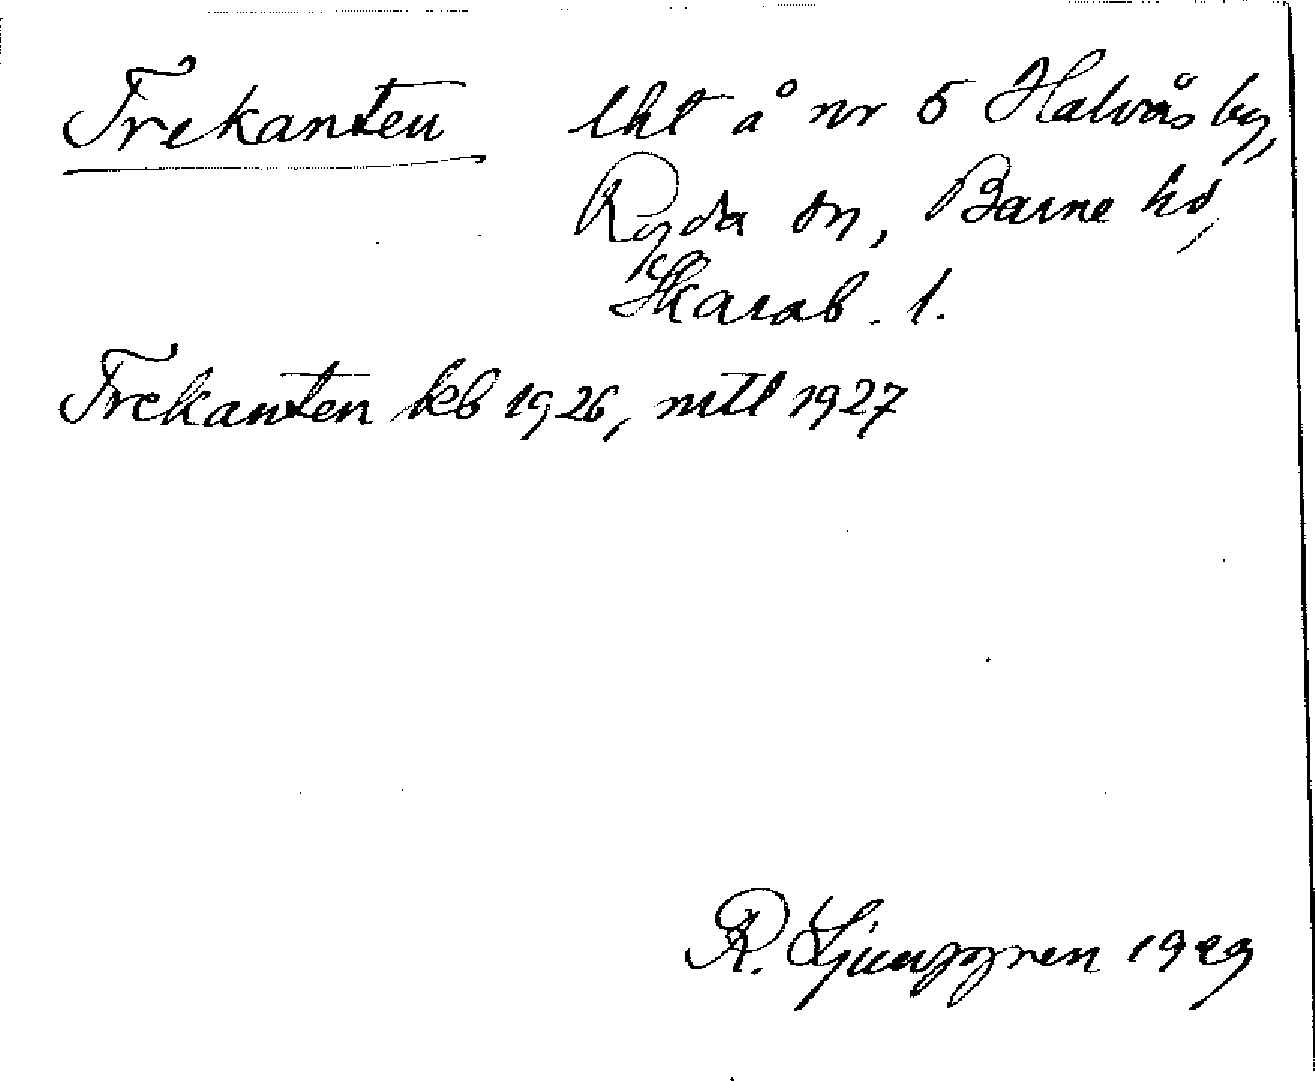 Trekanten lht å nr 5 Halvås by,
Ryda sn, Barne hd,
Skarab. l.
Trekanten kb 1926, mtl 1927
R. Ljunggren 1929